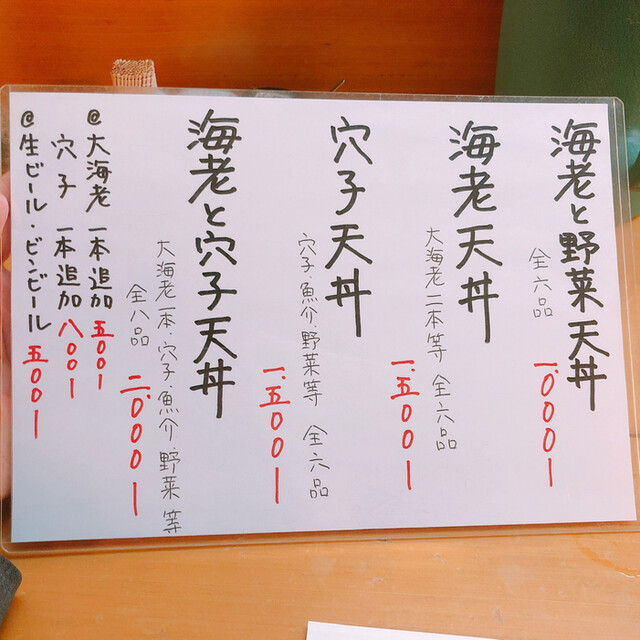 海老と野菜天丼
全六品
一、〇〇〇ー
海老天丼
大海老二本等 全六品
一、五〇〇ー
穴子天丼
穴子・魚介・野菜等 全六品
一、五〇〇ー
海老と穴子天丼
大海老一本・穴子・魚介・野菜 等
全八品
二、〇〇〇ー
@大海老 一本追加 五〇〇ー
穴子 一本追加 八〇〇ー
@生ビール・ビンビール 五〇〇ー